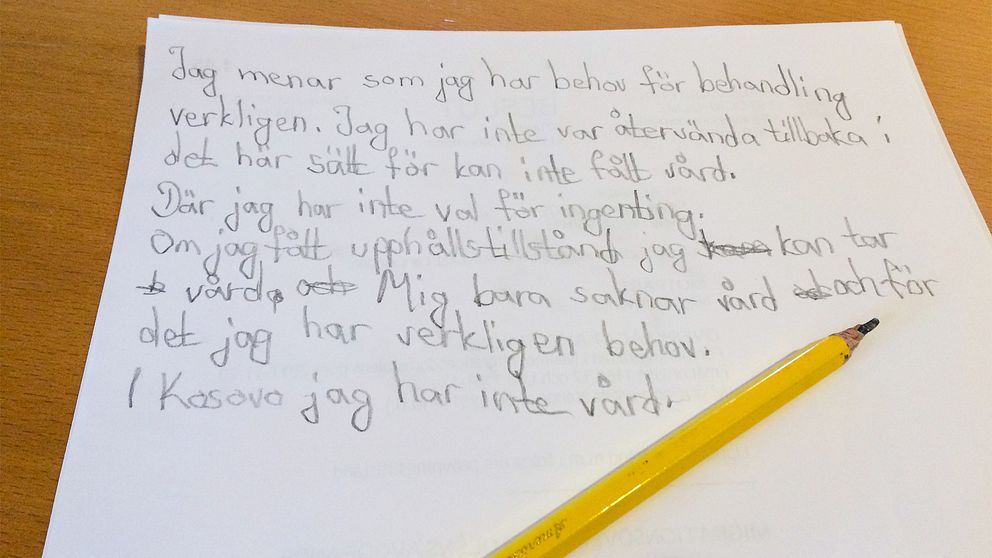 Jag menar som jag har behov för behandling
verkligen. Jag har inte var återvända tillbaka i
det här sätt för kan inte fått vård.
Där jag har inte val för ingenting.
Om jag fått upphållstillstånd jag kan tar
vård, Mig bara saknar vård och för
det jag har verkligen behov.
I Kosovo jag har inte vård.